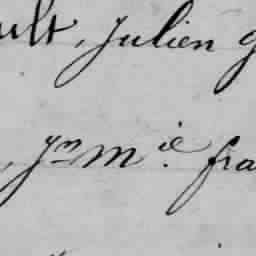 ult, Julien g
, Jn Mie. fra